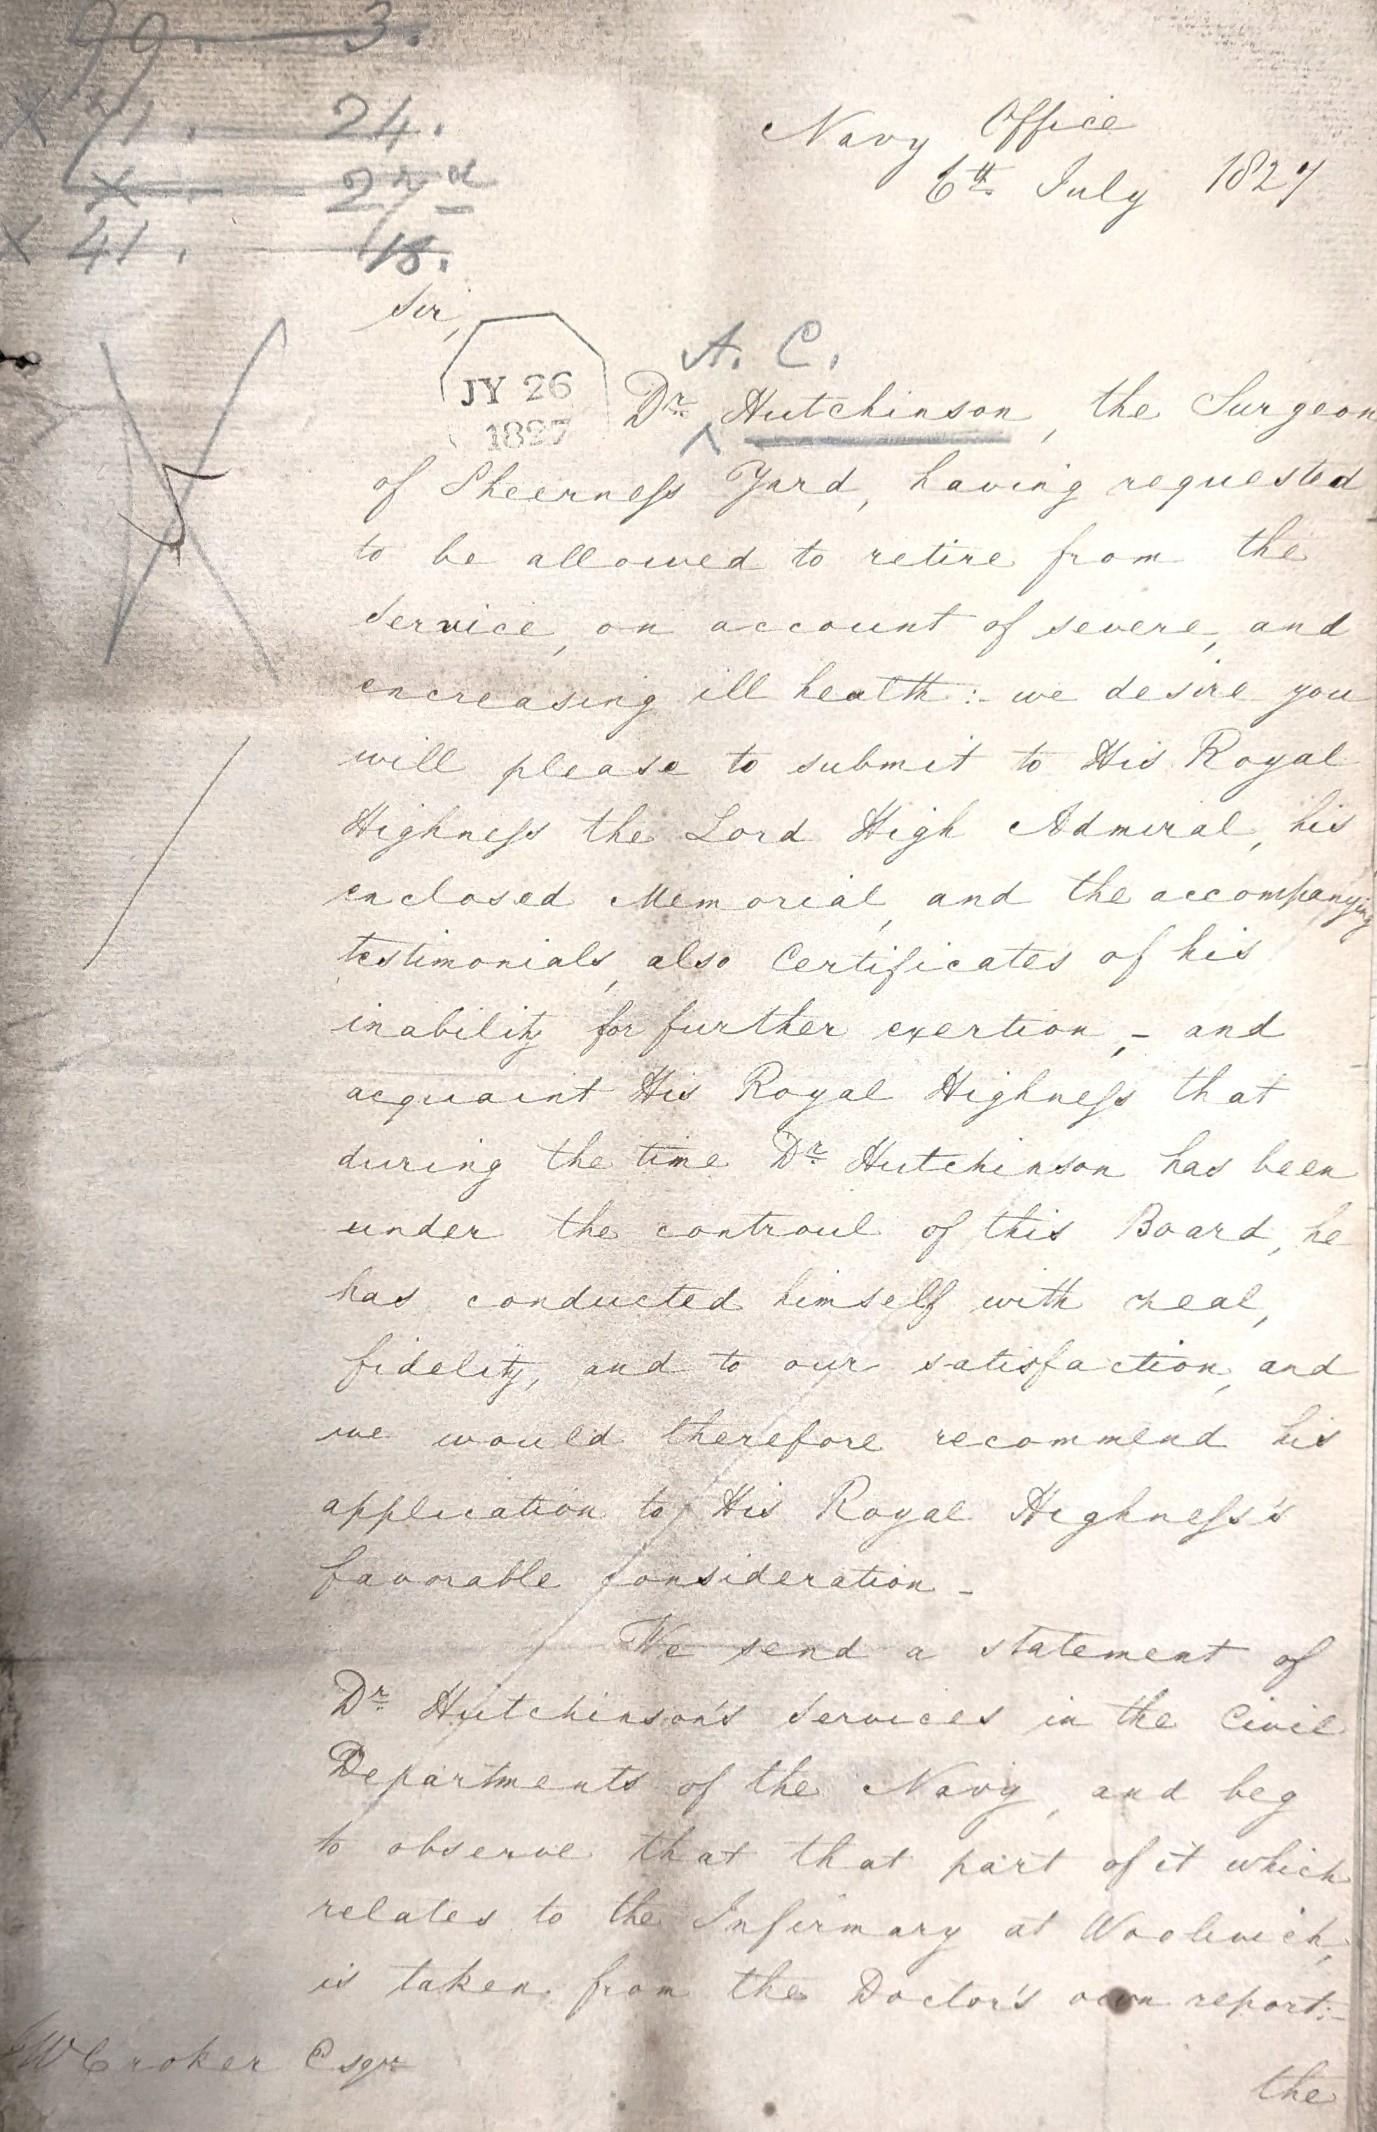 99. 3.
X 71. 24.
X. 27d
X 41. 18.
Navy Office
6th July 1827
Sir,
JY 26
1827
A. C.
Dr ^ Hutchinson, the Surgeon
5
of Sheerneſs Yard, having requested
to be allowed to retire from the
service, on account of severe, and
encreasing ill health:- we desire you
will please to submit to His Royal
Highneſs the Lord High Admiral, his
enclosed Memorial, and the accompanying
testimonials, also Certificates of his
inability for further exertion,- and
acquaint His Royal Highneſs that
during the time Dr Hutchinson has been
under the controul of this Board, he
has conducted himself with zeal,
fidelity, and to our satisfaction, and
we would therefore recommend his
application to His Royal Highneſs's
favorable consideration-
We send a statement of
Dr Hutchinson's Services in the Civil
Departments of the Navy, and beg
to observe that that part of it which
relates to the Infirmary at Woolwich,
is taken from the Doctor's own report:-
JW Croker Esqre
the